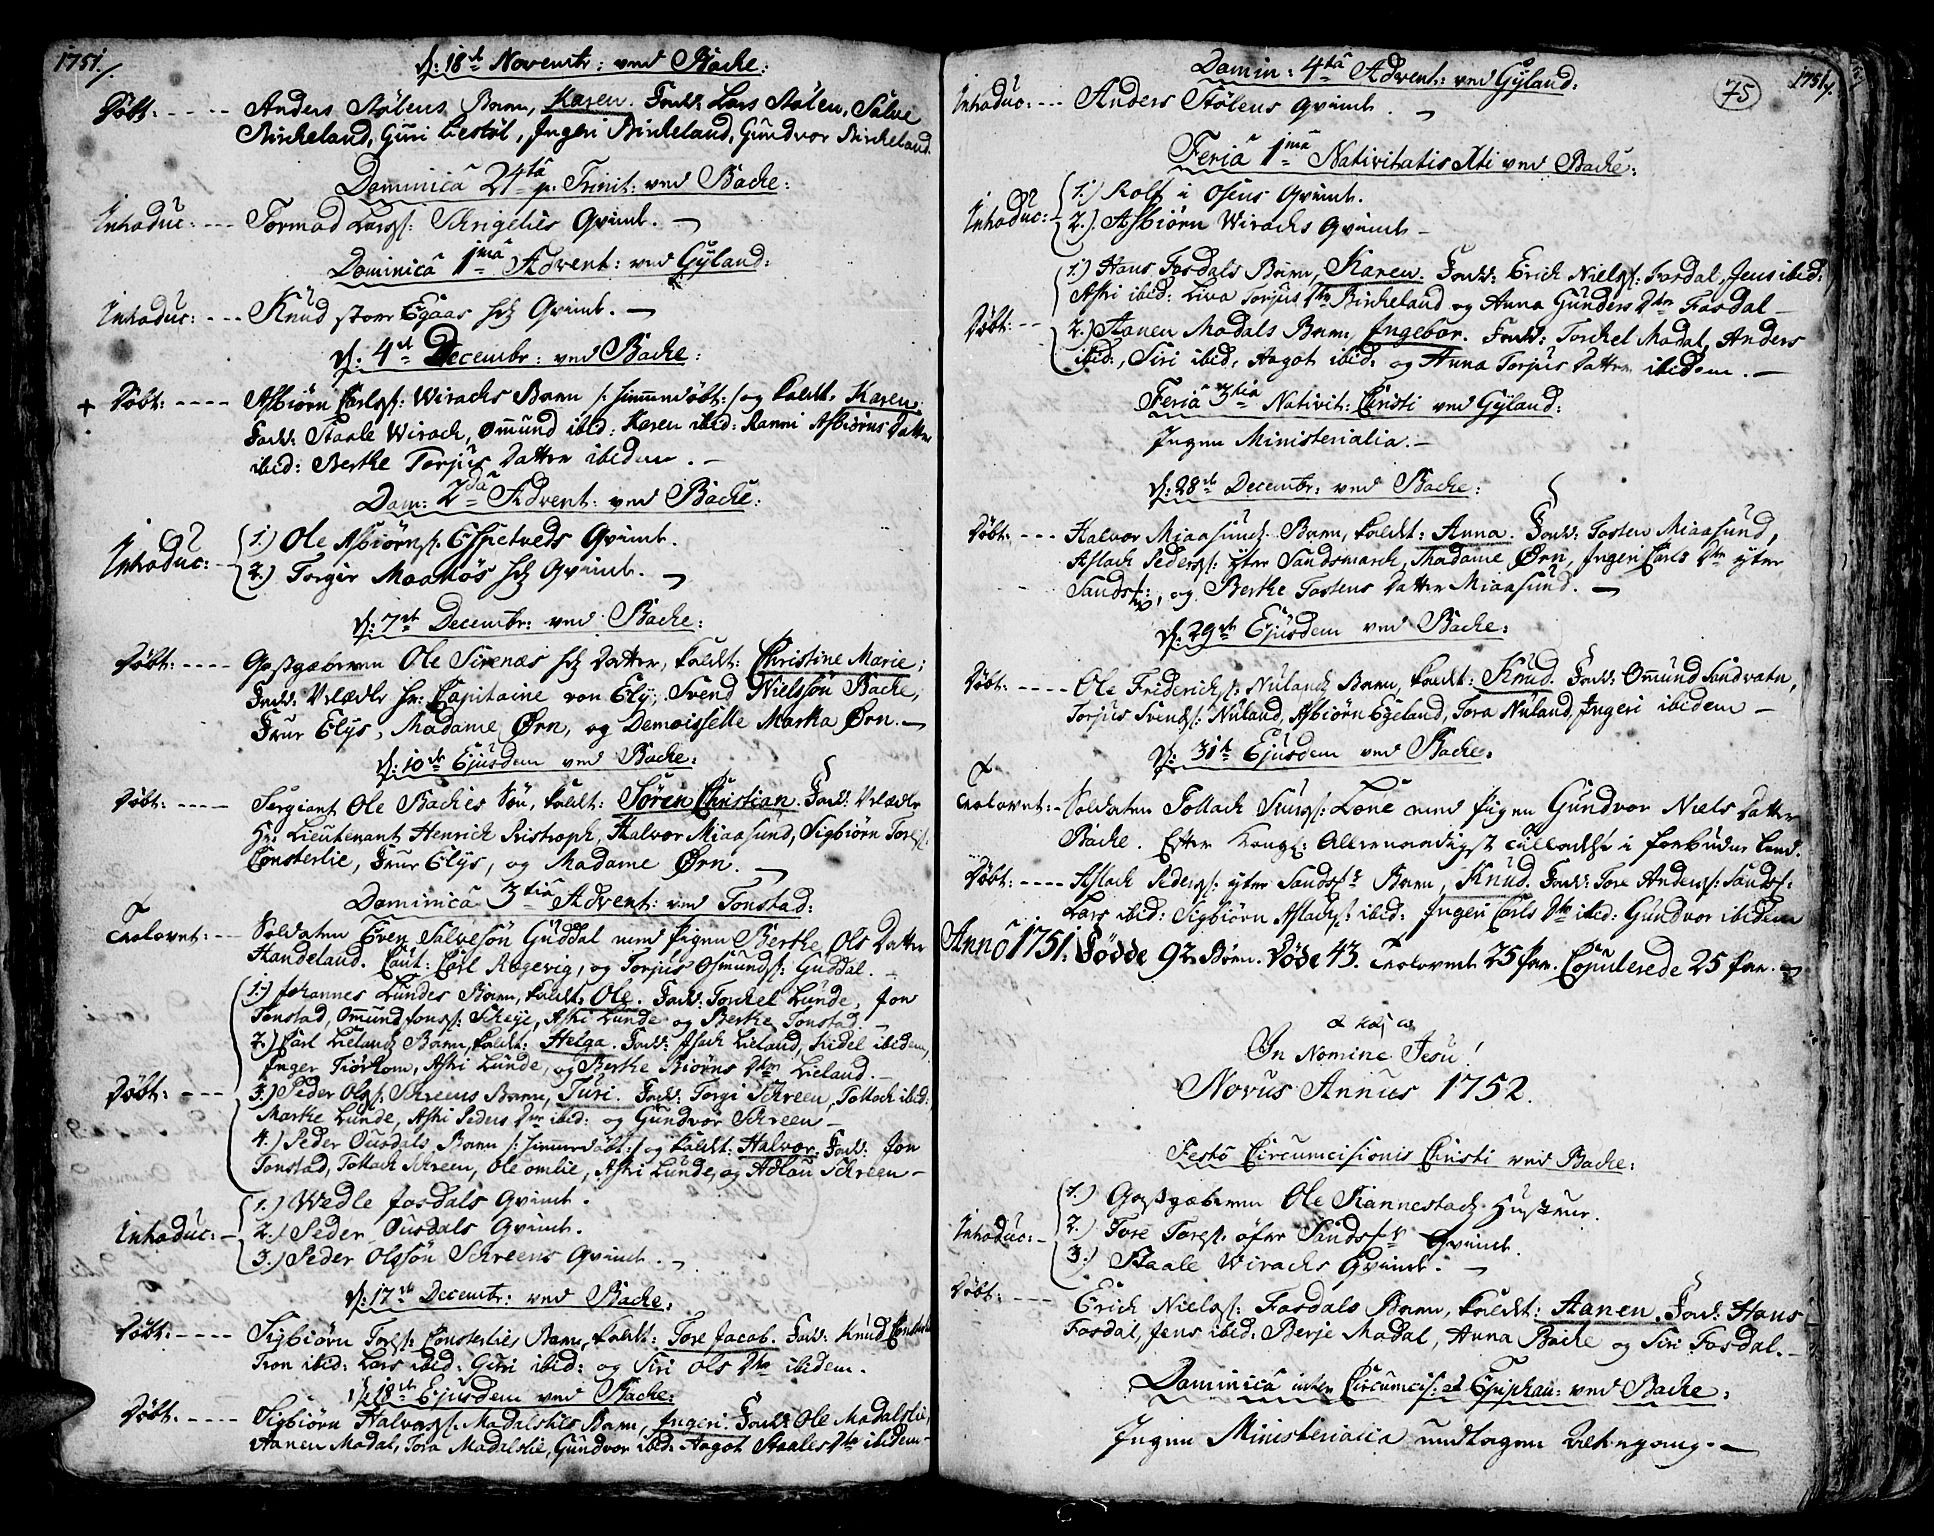 1751.
d: 18de Novembr: ved Backe:
Døbt: - - - - Anders Stølens Barn, Karen. Fadd: Lars Stølen, Salve
Birkeland, Guri Liestøl, Ingeri Birkeland, Gundvor Birkeland.
Dominica 24ta p: Trinit: ved Backe:
Introduc: - - - Tormod Larss: Schrigelies Qvinde. -
Dominica 1ma Advent: ved Gyland:
Introduc: - - - Knud store Egaas hs Qvinde. -
d: 4de Decembr: ved Backe:
+ Døbt: - - - - Asbiørn Carls: Wirachs Barn /: hiemmedøbt :/ og kaldt: Karen.
Fadd: Staale Wirach, Omund ibid: Karen ibid: Ranni Asbiørns Datter
ibid: Berthe Torjus Datter ibidem. -
Dom: 2da Advent: ved Backe:
Introduc: - 1.) Ole Asbiørns: Espetveds Qvinde.
2.) Torger Moanøs hs Qvinde. -
d: 7de Decembr: ved Backe:
Døbt: - - - - Gastgæberen Ole Sirenæs hs Datter, kaldt: Christine Marie;
Fadd: Velædle Hr: Capitaine von Ely; Svend Nielssøn Backe,
Frue Elys, Madame Ørn, og Demoiselle Martha Ørn. -
d: 10de Ejusdem ved Backe:
Døbt: - - - - Sergiant Ole Backes Søn, kaldt: Søren Christian. Fadd: Velædle
Hr Lieutenant Henrich Pristroph, Halvor Miaasund, Sigbiørn Tores:
Consterlie, Frue Elys, og Madame Ørn. -
Dominica 3tia Advent: ved Tonstad:
Trolovet: - - Soldaten Even Salvesøn Guddal med Pigen Berthe Ols Datter
Handeland. Caut: Carl Rægevig, og Torjus Osmunds: Guddal. -
1.) Johannes Lundes Barn, kaldt: Ole. Fadd: Torchel Lunde, Jon
Tonstad, Omund Jons: Scheje, Astri Lunde og Berthe Tonstad. -
2.) Carl Lielands Barn, kaldt: Helga. Fadd: Isach Lieland, Lidel ibidem,
Inger Fiørhom, Astri Lunde, og Berthe Biørns Dtr Lieland. -
Døbt: - - - 3.) Peder Ols: Schreens Barn, Turi. Fadd: Torgi Schreen, Tollach ibid:
Marthe Lunde, Astri Peders Dtr ibid: og Gundvor Schreen -
4.) Peder Ousdals Barn /: hiemmedøbt :/ og kaldt: Halvor. Fadd: Jon
Tonstad, Tollach Schreen, Ole Omlie, Astri Lunde, og Adlau Schreen -
1.) Wedle Josdals Qvinde.
Introduc: - 2.) Peder Ousdals Qvinde.
3.) Peder Olssøn Schreens Qvinde. -
d: 17de Decembr: ved Backe:
Døbt: - - - - Sigbiørn Tores: Consterlies Barn, kaldt: Tore Jacob. Fadd: Knud Consterlie
Tron ibid: Lars ibid: Guri ibid: og Siri Ols Dtr ibidem.
d: 18de Ejusdem ved Backe:
Døbt. - - - - Sigbiørn Halvors: Madalslies Barn, Ingeri. Fadd: Ole Madalslie,
Aanen Modal, Tora Madalslie, Gundvor ibid: Aagot Staales Dtr ibidem -
Domin: 4ta Advent: ved Gyland:
75
1751.
Introduc: - - - Anders Stølens Qvinde. -
Feria 1ma Nativitatis Xti ved Backe:
Introduc: - 1.) Rolf i Osens Qvinde.
2.) Asbiørn Wirachs Qvinde -
1.) Hans Fosdals Barn, Karen. Fadd: Erich Niels: Fosdal, Jens ibid:
Astri ibid: Liva Torjus Dtr Birkeland og Anna Gunders Dtr Fosdal -
Døbt: - - 2.) Aanen Modals Barn, Ingebor. Fadd: Torchel Modal, Anders
ibid:, Siri ibid: Aagot ibid: og Anna Torjus Datter ibidem. -
Feria 3tia Nativit: Christi ved Gyland:
Ingen Ministerialia. -
d: 28de Decembr: ved Backe:
Døbt: - - - Halvor Miaasunds Barn, kaldt: Anna. Fadd: Tosten Miaasund,
Aslach Peders: yter Sandsmarck, Madame Ørn, Ingeri Carls Dtr yter
Sands:, og Berthe Tostens Datter Miaasund. -
d: 29de Ejusdem ved Backe:
Døbt: - - - - Ole Friderichs: Nulands Barn, kaldt: Knud. Fadd: Omund Sandvatn,
Torjus Svends: Nuland, Asbiørn Egeland, Tora Nuland, Ingeri ibidem -
d: 31te Ejusdem ved Backe:
Trolovet: - Soldaten Tollach Siurs: Lone med Pigen Gundvor Niels Datter
Backe. Efter Kongl: Allernaadigst Tilladelse i forbuden Leed.
Døbt: - - - - Aslach Peders: yter Sandsm: Barn, Knud. Fadd: Tore Anders: Sandsm:
Lars ibid: Sigbiørn Aslachs: ibid: Ingeri Carls Dtr ibid: Gundvor ibidem
Anno 1751. Fødde 92 Børn. Døde 43. Trolovede 25 Par. Copulerede 25 Par. -
In Nomine Jesu!
Novus Annus 1752.
Festo Circumcisionis Christi ved Backe:
1.) Gastgæberen Ole Rannestads Hustrue.
Introduc: - 2.) Tore Tores: øfre Sands: Qvinde.
3.) Staale Wirachs Qvinde. -
Døbt: - - - - Erich Niels: Fosdals Barn, kaldt: Aanen. Fadd: Hans
Fosdal, Jens ibid: Berje Modal, Anna Backe og Siri Fosdal. -
Dominica inter Circumcis: et Epiphan: ved Backe:
Ingen Ministerialia undtagen Altergang. -